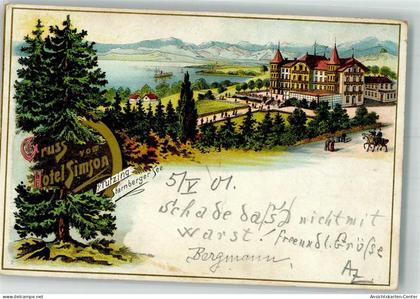 Gruss
vom
Hotel Simson
Tutzing
Starnberger See
5/V 01.
Schade daß d' nicht mit
warst! Freundl. Grüße
Bergmann.
www.Ansichtskarten-Center.de